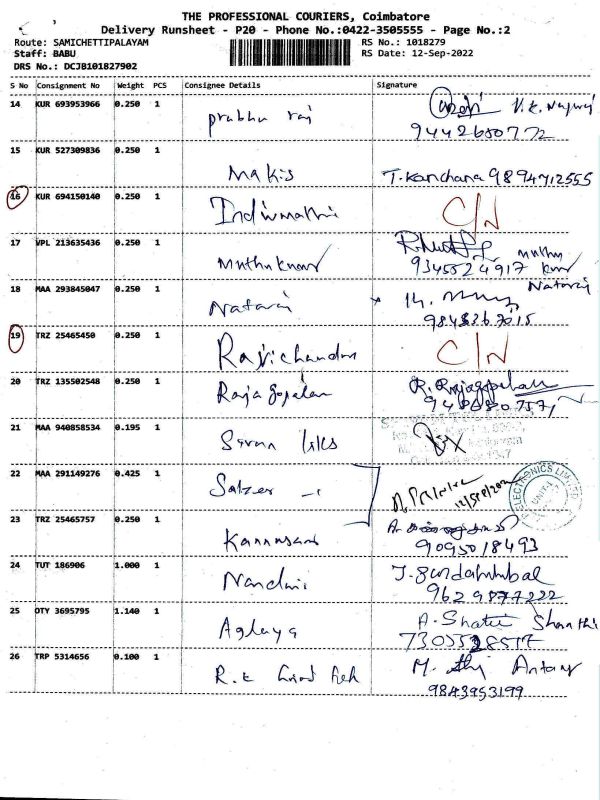 THE PROFESSIONAL COURIERS, Coimbatore
Delivery Runsheet - P20 - Phone No.:0422-3505555 - Page No.:2
Route: SAMICHETTIPALAYAM
RS No.: 1018279
Staff: BABU
RS Date: 12-Sep-2022
DRS No.: DCJB101827902
S No Consignment No Weight PCS Consignee Details Signature
14 KUR 693953966 0.250 1 prabhu raj
15 KUR 527309836 0.250 1 Makis T. Kanchana 9894712555
16 KUR 694150140 0.250 1 Indhumathi C/N
17 VPL 213635436 0.250 1 Muthukumar
9345524917
18 MAA 293845047 0.250 1 Nataraj Nataraj
19 TRZ 25465450 0.250 1 Ravichandran C/N
20 TRZ 135502548 0.250 1 Rajagopalan R. Rajagopalan
21 MAA 940858534 0.195 1
22 MAA 291149276 0.425 1 Salzer
12/Sep/202
ELECTRONICS LIMITED
UNIT-I
23 TRZ 25465757 0.250 1
9095018493
24 TUT 186906 1.000 1 Nandini
9629877222
25 OTY 3695795 1.140 1 Aglaya A. Shanthi Shanthi
26 TRP 5314656 0.100 1 Antony
9843953199